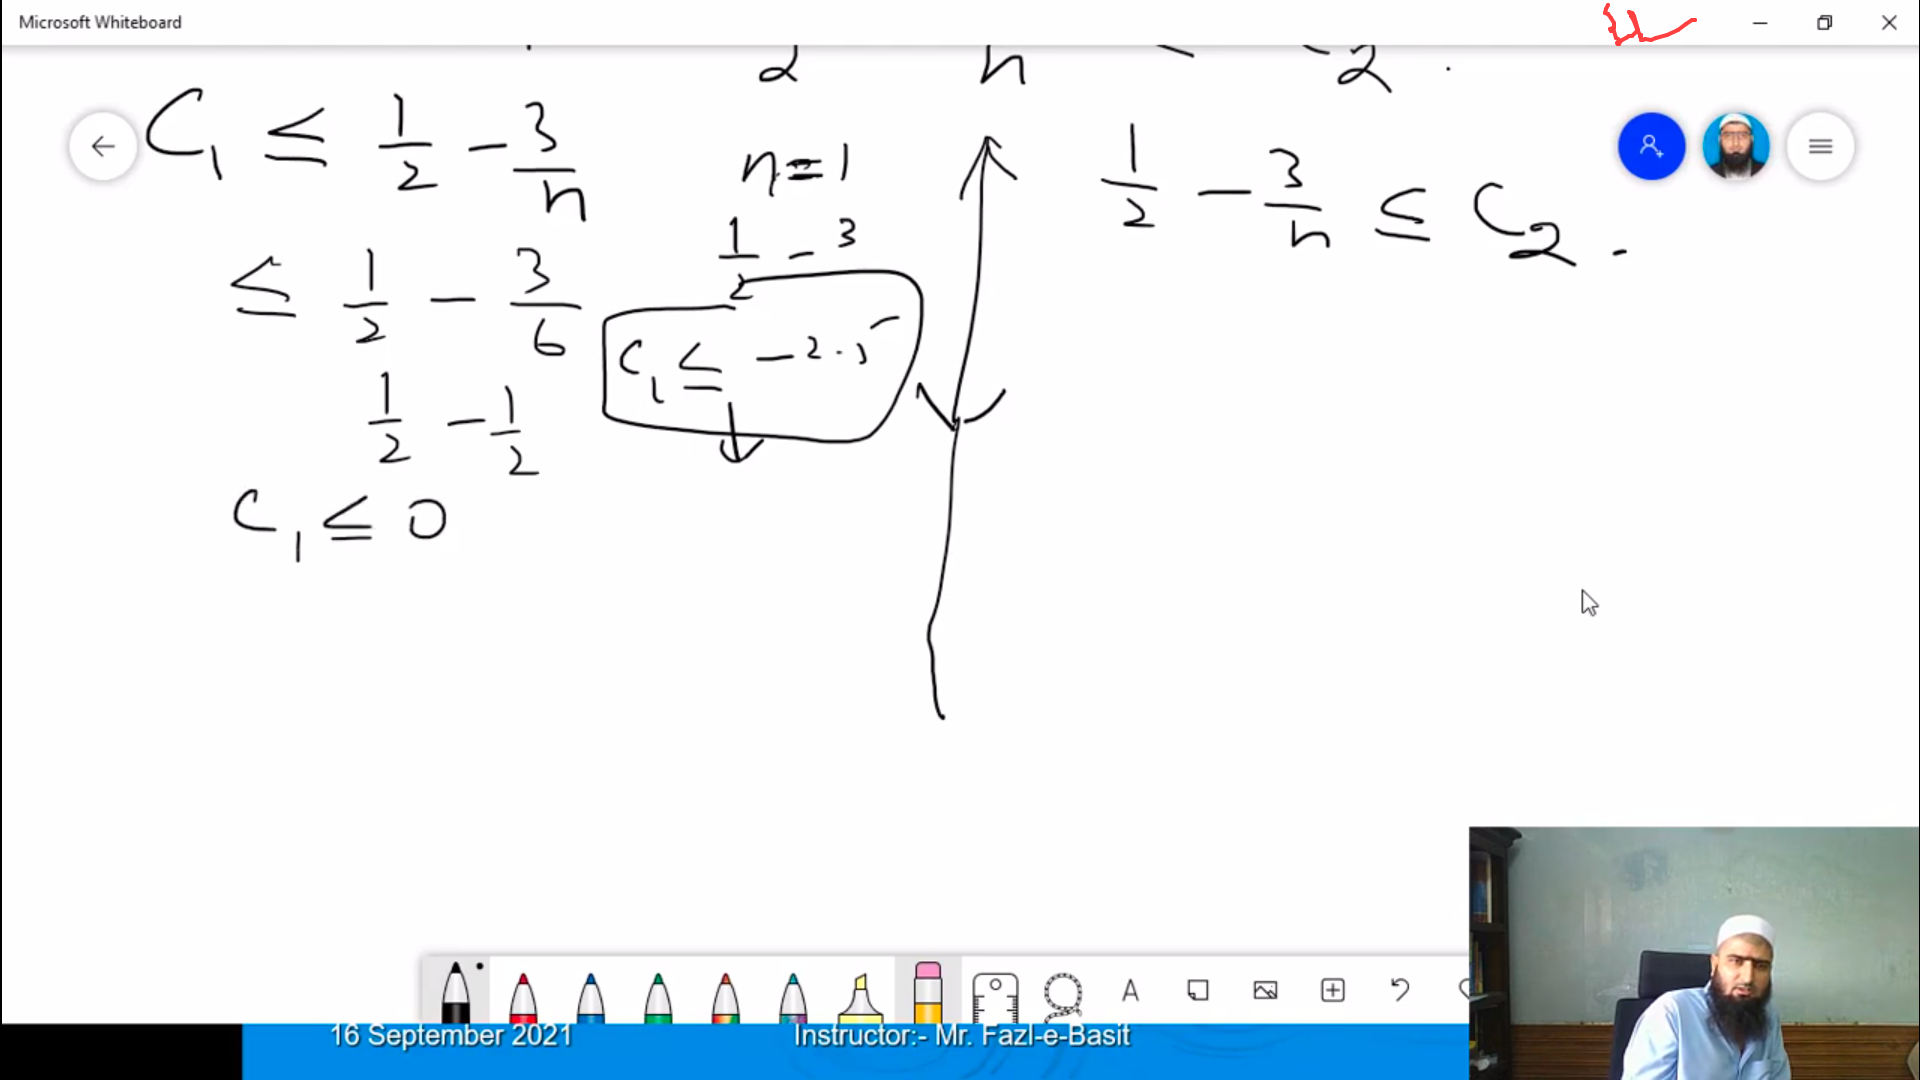 Microsoft Whiteboard
2 n 2 .
C₁ ≤ 1/2 - 3/n
≤ 1/2 - 3/6
1/2 - 1/2
C₁ ≤ 0
n = 1
1/2 - 3
C₁ ≤ -2.5
1/2 - 3/n ≤ C₂ .
A
16 September 2021
Instructor:- Mr. Fazl-e-Basit